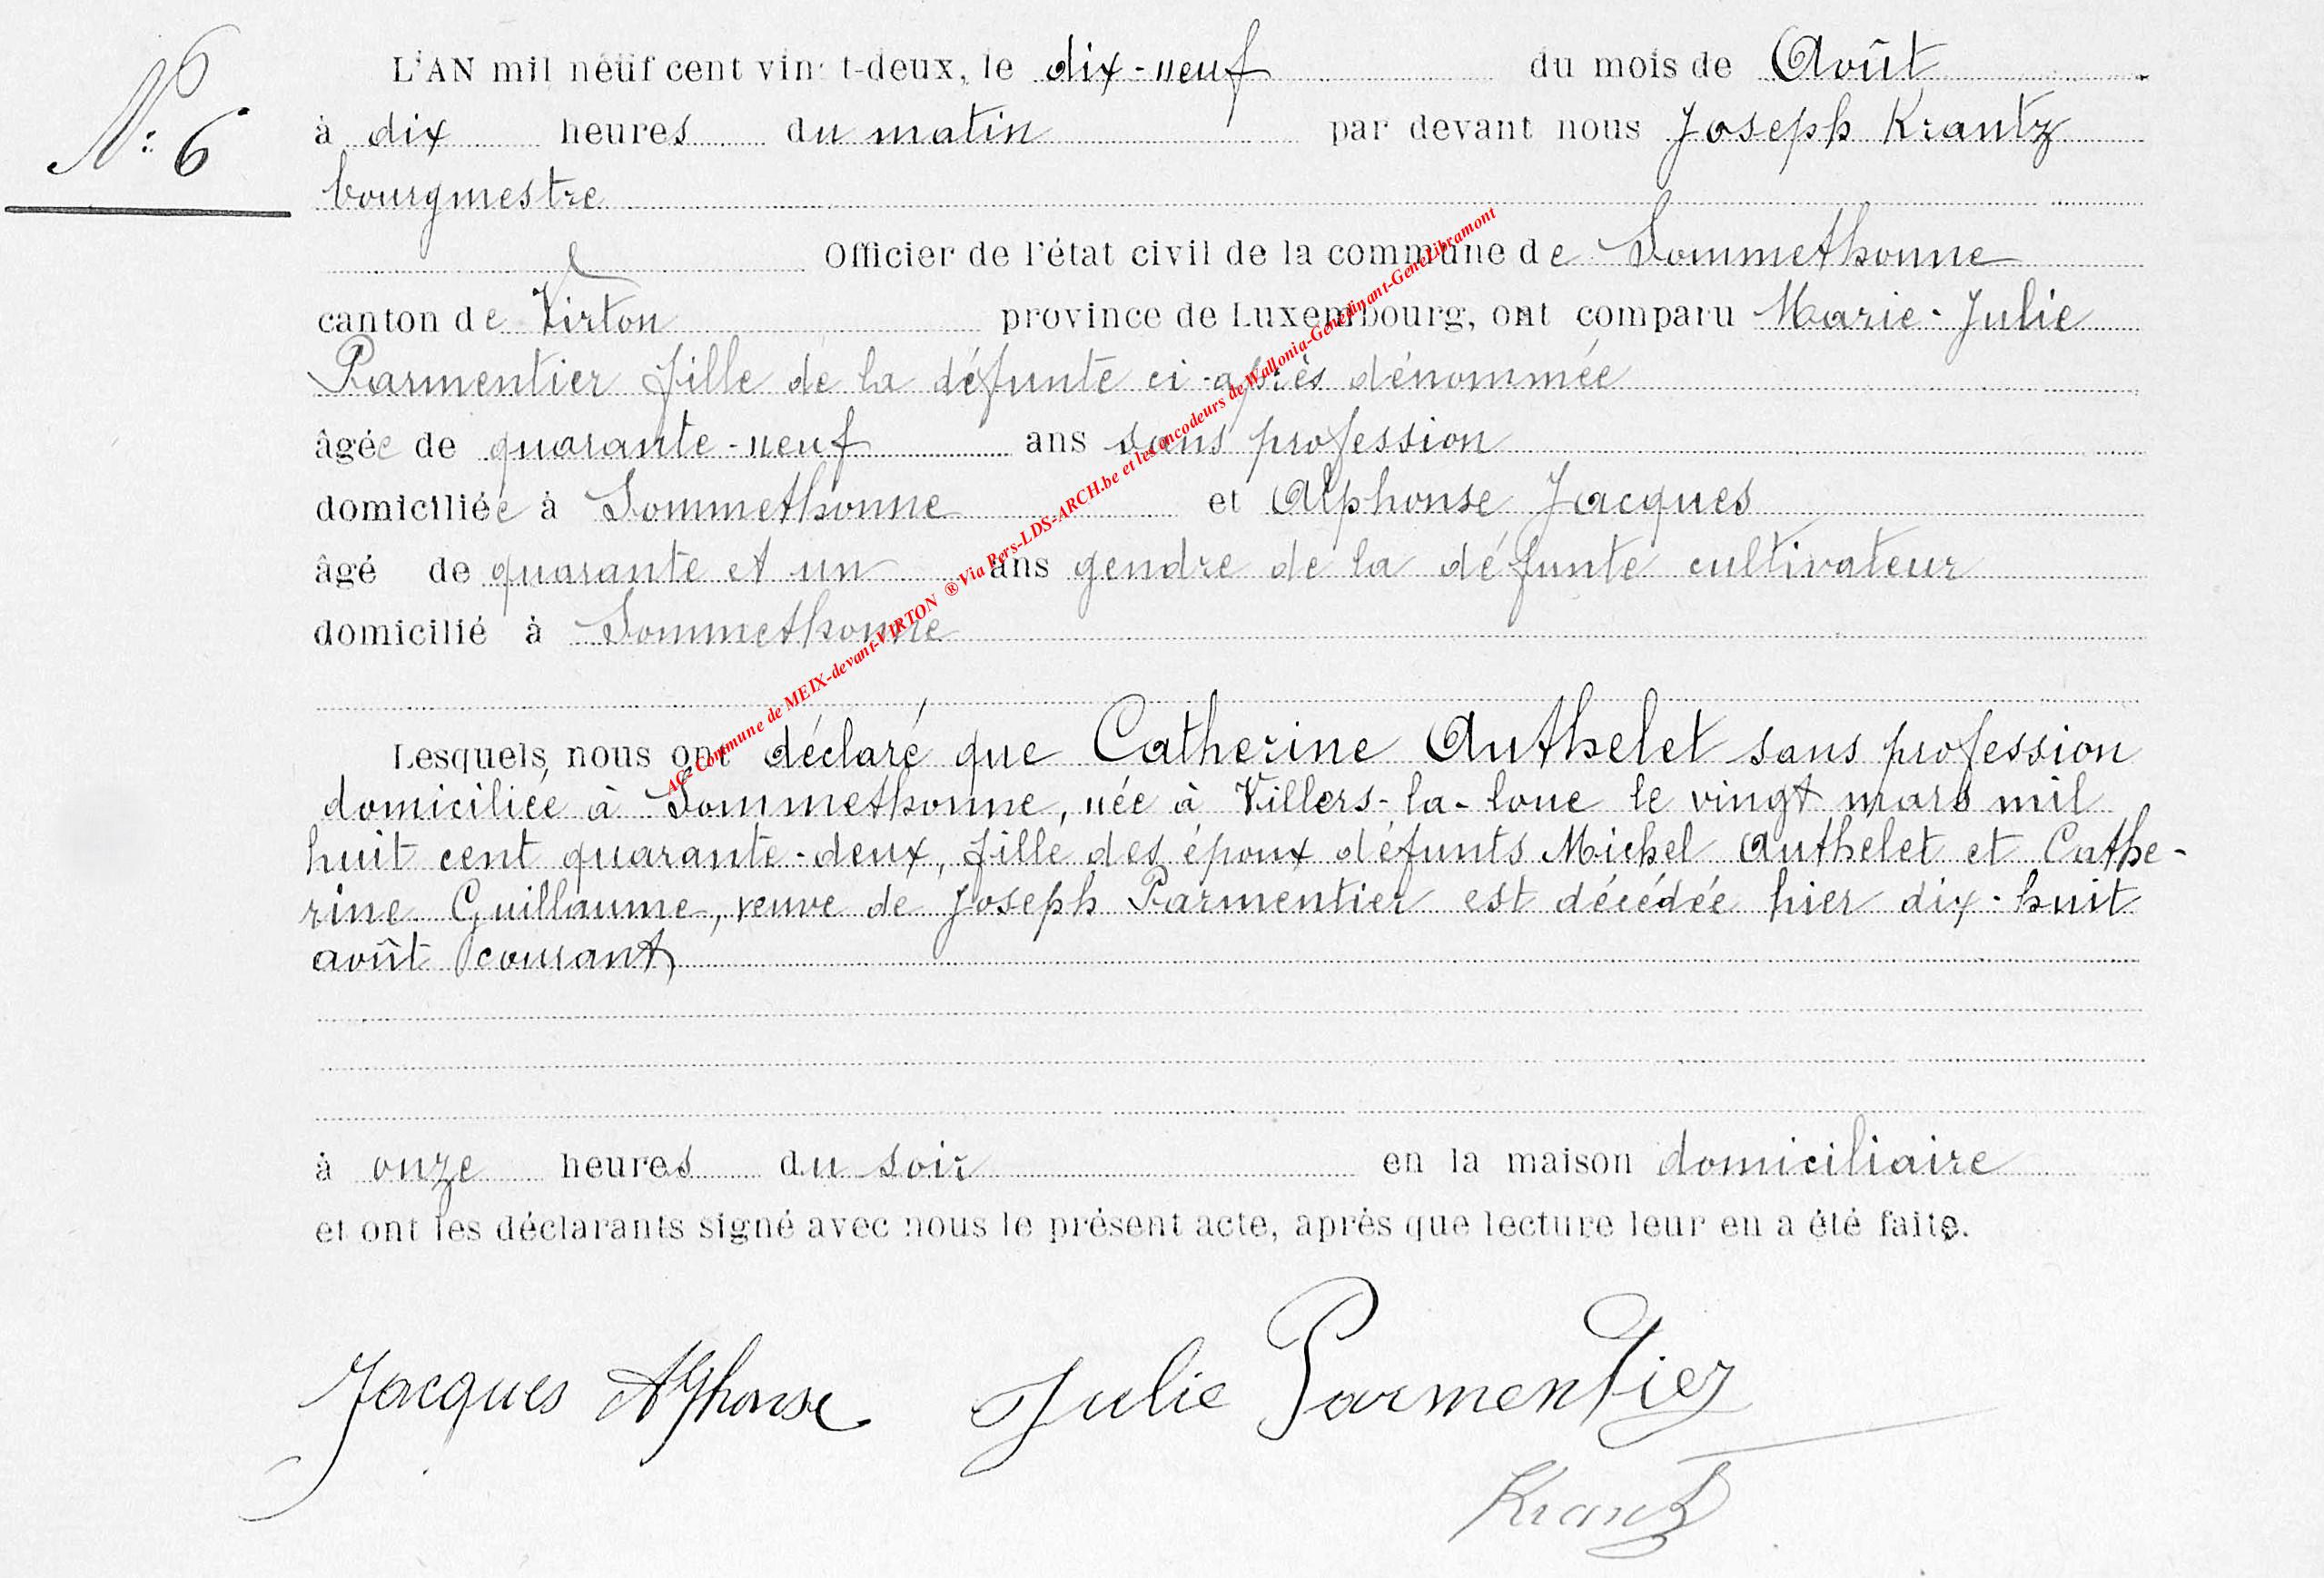 N° 6
L'AN mil neuf cent vin t-deux, le dix-neuf du mois de Août
à dix heures du matin par devant nous Joseph Krantz
bourgmestre
Officier de l'état civil de la commune de Sommethonne
canton de Virton province de Luxembourg, ont comparu Marie-Julie
Parmentier fille de la défunte ci-après dénommée
âgée de quarante-neuf ans sans profession
domiciliée à Sommethonne et Alphonse Jacques
âgé de quarante et un ans gendre de la défunte cultivateur
domicilié à Sommethonne
Lesquels nous ont déclaré que Catherine Authelet sans profession
domiciliée à Sommethonne, née à Villers-la-loue le vingt mars mil
huit cent quarante-deux, fille des époux défunts Michel Authelet et Cathe-
rine Guillaume, veuve de Joseph Parmentier est décédée hier dix-huit
août courant
à onze heures du soir en la maison domiciliaire
et ont les déclarants signé avec nous le présent acte, après que lecture leur en a été faite.
Jacques Alphonse Julie Parmentier
Krantz
AC: Commune de MEIX-devant-VIRTON ® Via Pers-LDS-ARCH.be et les encodeurs de Wallonia-Genedinant-GeneLibramont